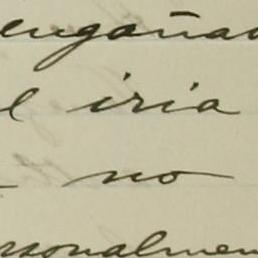 engañad
l iria
no
rsonalmen